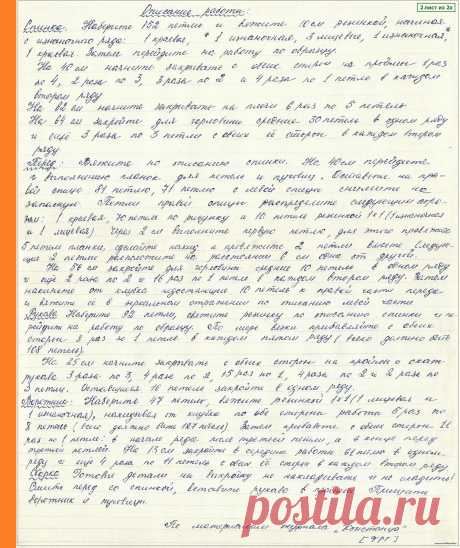 2 лист из 2х
Описание работы:
Спинка. Наберите 152 петли и вяжите 10 см резинкой, начиная
с изнаночного ряда: 1 краевая, * 1 изнаночная, 3 лицевые, 1 изнаночная,*
1 краевая. Затем перейдите на работу по образцу.
На 40 см начните закрывать с обеих сторон на проймы 1 раз
по 4, 2 раза по 3, 3 раза по 2 и 4 раза по 1 петле в каждом
втором ряду.
На 62 см начните закрывать на плечи 6 раз по 5 петель
На 64 см закройте для горловины средние 30 петель в одном ряду
и ещё 3 раза по 3 петли с обеих её сторон в каждом втором
ряду
Перед: Вяжите по описанию спинки. На 40 см перейдите
к выполнению планок для петель и пуговиц. Оставьте на пра-
вой спице 81 петлю, 71 петлю с левой спицы снимите на
запасную. Петли правой спицы распределите следующим обра-
зом: 1 краевая, 70 петель по рисунку и 10 петель резинкой 1×1 (1 изнаночная
и 1 лицевая) Через 2 см выполните первую петлю, для этого провяжите
5 петель планки, сделайте накид и провяжите 2 петли вместе. Следую-
щие 2 петли расположите на расстоянии 8 см одна от другой.
На 56 см закройте для горловины средние 10 петель в одном ряду
и ещё 2 раза по 2 и 16 раз по 1 петле в каждом втором ряду. Затем
наберите от клубка недостающие 10 петель к правой части переда
и вяжите её в зеркальном отражении по описанию левой части
Рукава Наберите 92 петли, вяжите резинку по описанию спинки и пе-
рейдите на работу по образцу. По мере вязки прибавляйте с обеих
сторон 8 раз по 1 петле в каждом пятом ряду (всего должно быть
108 петель).
На 25 см начните закрывать с обеих сторон на пройму и скат
рукава 3 раза по 3, 4 раза по 2, 15 раз по 1, 4 раза по 2 и 2 раза по
3 петли. Оставшиеся 16 петель закройте в одном ряду.
Воротник: Наберите 47 петель, вяжите резинкой 1×1 (1 лицевая и
1 изнаночная), набирая от клубка по обе стороны работы 5 раз по
8 петель (всего должно быть 127 петель) Затем прибавьте с обеих сторон 22
раз по 1 петле: в начале ряда после третьей петли, а в конце перед
третьей петлёй. На 15 см закройте в середине работы 61 петлю в одном
ряду и ещё 4 раза по 11 петель с обеих её сторон в каждом втором ряду
Сборка Готовые детали на выкройку не накладывать и не гладить!
Сшить перед со спинкой, вставить рукава в проймы. Пришить
воротник и пуговицы.
По материалам журнала „Констанца"
(ФРГ)
postila.ru